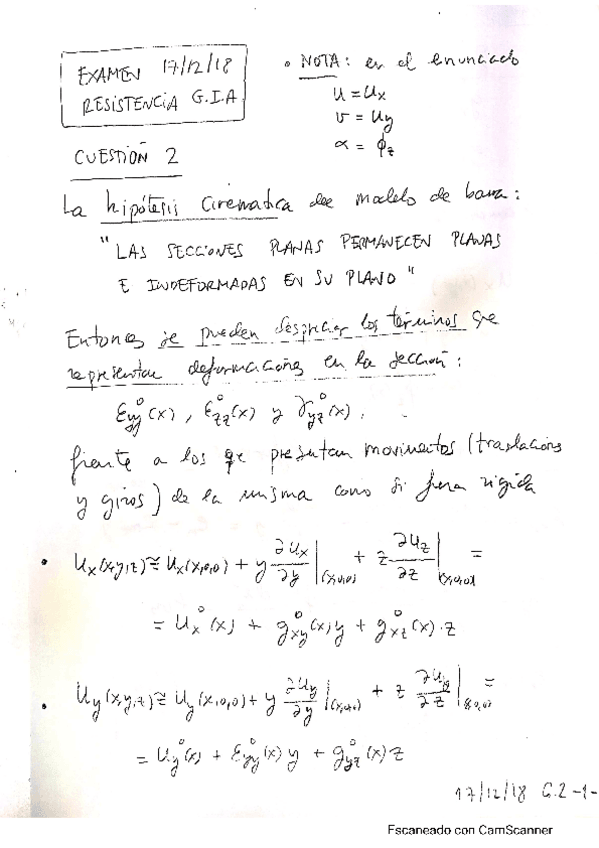 EXAMEN 17/12/18
RESISTENCIA G.I.A
• NOTA: en el enunciado
u = u_x
v = u_y
α = ϕ_z
CUESTIÓN 2
La hipótesis cinematica del modelo de barra:
"LAS SECCIONES PLANAS PERMANECEN PLANAS
E INDEFORMADAS EN SU PLANO"
Entonces se pueden despreciar los términos que
representan deformaciones en la sección:
ε_yy^0(x), ε_zz^0(x) y γ_yz^0(x).
frente a los que presentan movimientos (traslaciones
y giros) de la misma como si fuera rigida
• u_x(x,y,z) ≅ u_x(x,0,0) + y ∂u_x/∂y|(x,0,0) + z ∂u_z/∂z|(x,0,0) =
= u_x^0(x) + g_xy^0(x) y + g_xz^0(x)·z
• u_y(x,y,z) ≅ u_y(x,0,0) + y ∂u_y/∂y|(x,0,0) + z ∂u_y/∂z|(x,0,0) =
= u_y^0(x) + ε_yy^0(x) y + g_yz^0(x) z
17/12/18 C.2 -1-
Escaneado con CamScanner